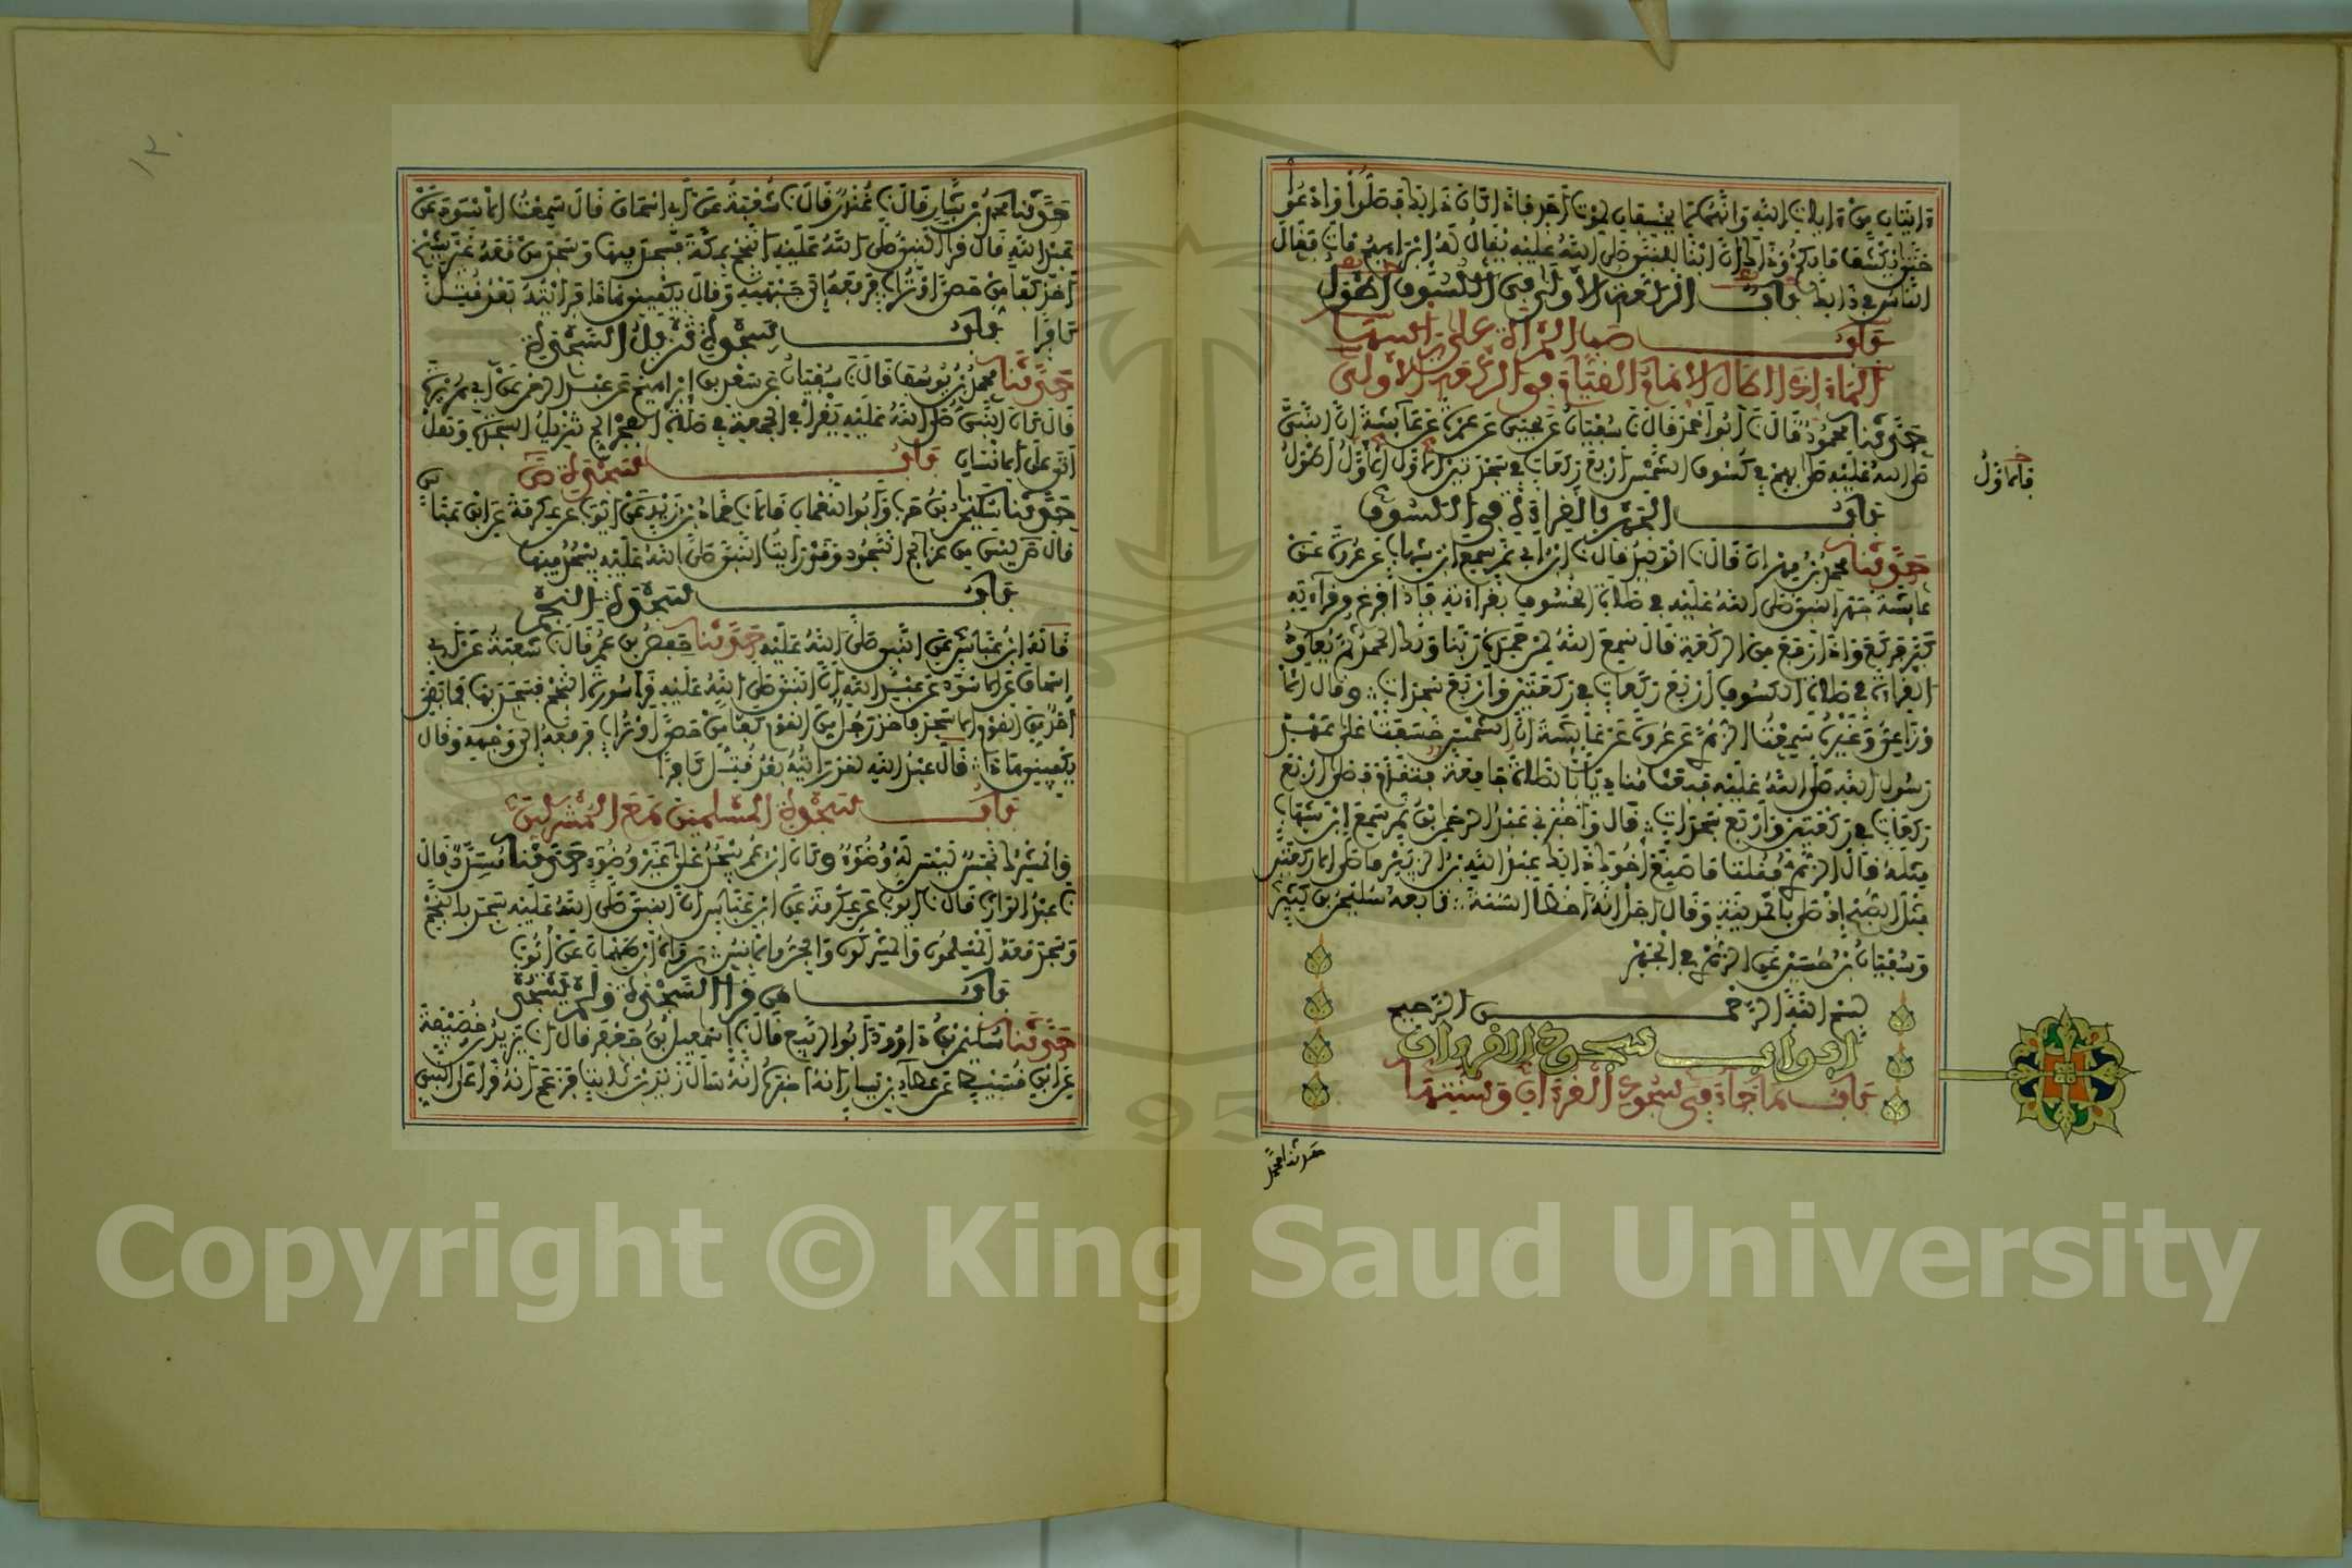 ءايتان من ءايات الله وانهما لا يخسفان لموت أحد فإذا كان ذلك فصلوا وادعوا
حتى يكشف ما بكم وذلك ان ابنا للنبي صلى الله عليه يقال له إبراهيم مات فقال
الناس في ذلك باب الركعة الأولى في الكسوف أطول
باب صب المرأة على رأسها
الماء إذا أطال الإمام القيام في الركعة الأولى
حدثنا محمود قال نا أبو أحمد قال نا سفيان عن يحيى عن عمرة عن عائشة أن النبي
صلى الله عليه صلى بهم في كسوف الشمس أربع ركعات في سجدتين الأول الأول أطول
فالأول
باب الجهر بالقراءة في الكسوف
حدثنا محمد بن مهران قال نا الوليد قال نا ابن نمر سمع ابن شهاب عن عروة عن
عائشة جهر النبي صلى الله عليه في صلاة الخسوف بقراءته فإذا فرغ من قراءته
كبر فركع وإذا رفع من الركعة قال سمع الله لمن حمده ربنا ولك الحمد ثم يعاود
القراءة في صلاة الكسوف أربع ركعات في ركعتين وأربع سجدات وقال الأ
وزاعي وغيره سمعت الزهري عن عروة عن عائشة أن الشمس خسفت على عهد
رسول الله صلى الله عليه فبعث مناديا بالصلاة جامعة فتقدم فصلى أربع
ركعات في ركعتين وأربع سجدات قال وأخبرني عبد الرحمن بن نمر سمع ابن شهاب
مثله قال الزهري فقلت ما صنع أخوك ذلك عبد الله بن الزبير ما صلى إلا ركعتين
مثل الصبح إذ صلى بالمدينة وقال أجل انه أخطأ السنة تابعه سليمن بن كثير
وسفيان بن حسين عن الزهري في الجهر
بسم الله الرحمن الرحيم
أبواب سجود القرءان
باب ما جاء في سجود القرءان وسنتها
حدثنا محمد
١٢٠
حدثنا محمد بن بشار قال نا غندر قال نا شعبة عن أبي إسحاق قال سمعت الأسود عن
عبد الله قال قرأ النبي صلى الله عليه النجم بمكة فسجد فيها وسجد من معه غير شيخ
أخذ كفا من حصا أو تراب فرفعه إلى جبهته وقال يكفيني هذا فرأيته بعد قتل
كافرا باب سجدة تنزيل السجدة
حدثنا محمد بن يوسف قال نا سفيان عن سعد بن إبراهيم عن عبد الرحمن عن أبي هريرة
قال كان النبي صلى الله عليه يقرأ في الجمعة في صلاة الفجر الم تنزيل السجدة وهل
أتى على الإنسان باب سجدة ص
حدثنا سليمن بن حرب وأبو النعمان قالا نا حماد بن زيد عن أيوب عن عكرمة عن ابن عباس
قال ص ليس من عزائم السجود وقد رأيت النبي صلى الله عليه يسجد فيها
باب سجدة النجم
قاله ابن عباس عن النبي صلى الله عليه حدثنا حفص بن عمر قال نا شعبة عن أبي
إسحاق عن الأسود عن عبد الله أن النبي صلى الله عليه قرأ سورة النجم فسجد بها فما بقي
أحد من القوم إلا سجد فأخذ رجل من القوم كفا من حصا أو تراب فرفعه إلى وجهه وقال
يكفيني هذا قال عبد الله لقد رأيته بعد قتل كافرا
باب سجود المسلمين مع المشركين
والمشرك نجس ليس له وضوء وكان ابن عمر يسجد على غير وضوء حدثنا مسدد قال
نا عبد الوارث قال نا أيوب عن عكرمة عن ابن عباس أن النبي صلى الله عليه سجد بالنجم
وسجد معه المسلمون والمشركون والجن والإنس رواه ابن طهمان عن أيوب
باب من قرأ السجدة ولم يسجد
حدثنا سليمن بن داود أبو الربيع قال نا إسمعيل بن جعفر قال نا يزيد بن خصيفة
عن ابن قسيط عن عطاء بن يسار أنه أخبره أنه سأل زيد بن ثابت فزعم أنه قرأ على النبي
Copyright © King Saud University